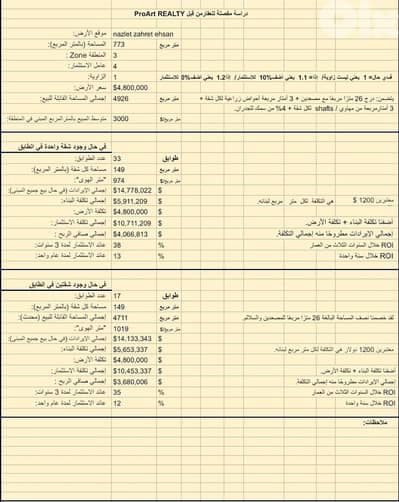 دراسة مفصلة للعقار من قبل ProArt REALTY
موقع الأرض: nazlet zahret ehsan
المساحة (بالمتر المربع): 773 متر مربع
المنطقة Zone : 3
عامل الاستثمار: 4
الزاوية: 1 فـي حال= 1 يعني ليست زاوية/ إذا= 1.1 يعني اضف10% للاستثمار/ إذا1.2 يعني اضف5% للاستثمار
سعر الأرض: $4,800,000
إجمالي المساحة القابلة للبيع: 4926 متر مربع يتضمن: درج 26 مترًا مربعًا مع مصعدين + 3 أمتار مربعة أحواض زراعية لكل شقة + 3 أمتار مربعة من مهاوي / shafts لكل شقة + 4% من سمك للجدران.
متوسط المبيع بالمتر المربع المبني في المنطقة: 3000 متر مربع/$
في حال وجود شقة واحدة في الطابق
عدد الطوابق: 33 طوابق
مساحة كل شقة (بالمتر المربع): 149 متر مربع
"متر الهوى": 974 متر مربع/$
إجمالي الإيرادات (في حال بيع جميع المبنى): $14,778,022 $
إجمالي تكلفة البناء: $5,911,209 $ معتبرين 1200 $ هي التكلفة لكل متر مربع لبنائه.
تكلفة الأرض: $4,800,000 $
إجمالي تكلفة الاستثمار: $10,711,209 $ أضفنا تكلفة البناء + تكلفة الأرض.
إجمالي صافي الربح : $4,066,813 $ إجمالي الإيرادات مطروحًا منه إجمالي التكلفة.
عائد الاستثمار لمدة 3 سنوات: 38 % ROI خلال السنوات الثلاث من العمار
عائد الاستثمار لمدة عام واحد: 13 % ROI خلال سنة واحدة
في حال وجود شقتين في الطابق
عدد الطوابق: 17 طوابق
مساحة كل شقة (بالمتر المربع): 149 متر مربع
إجمالي المساحة القابلة للبيع (محدث): 4711 متر مربع لقد خصمنا نصف المساحة البالغة 26 مترًا مربعًا للمصعدين والسلالم.
"متر الهوى": 1019 متر مربع/$
إجمالي الإيرادات (في حال بيع جميع المبنى): $14,133,343 $
إجمالي تكلفة البناء: $5,653,337 $ معتبرين 1200 دولار هي التكلفة لكل متر مربع لبنائه.
تكلفة الأرض: $4,800,000 $
إجمالي تكلفة الاستثمار: $10,453,337 $ أضفنا تكلفة البناء + تكلفة الأرض.
إجمالي صافي الربح : $3,680,006 $ إجمالي الإيرادات مطروحًا منه إجمالي التكلفة.
عائد الاستثمار لمدة 3 سنوات: 35 % ROI خلال السنوات الثلاث من العمار
عائد الاستثمار لمدة عام واحد: 12 % ROI خلال سنة واحدة
ملاحظات: